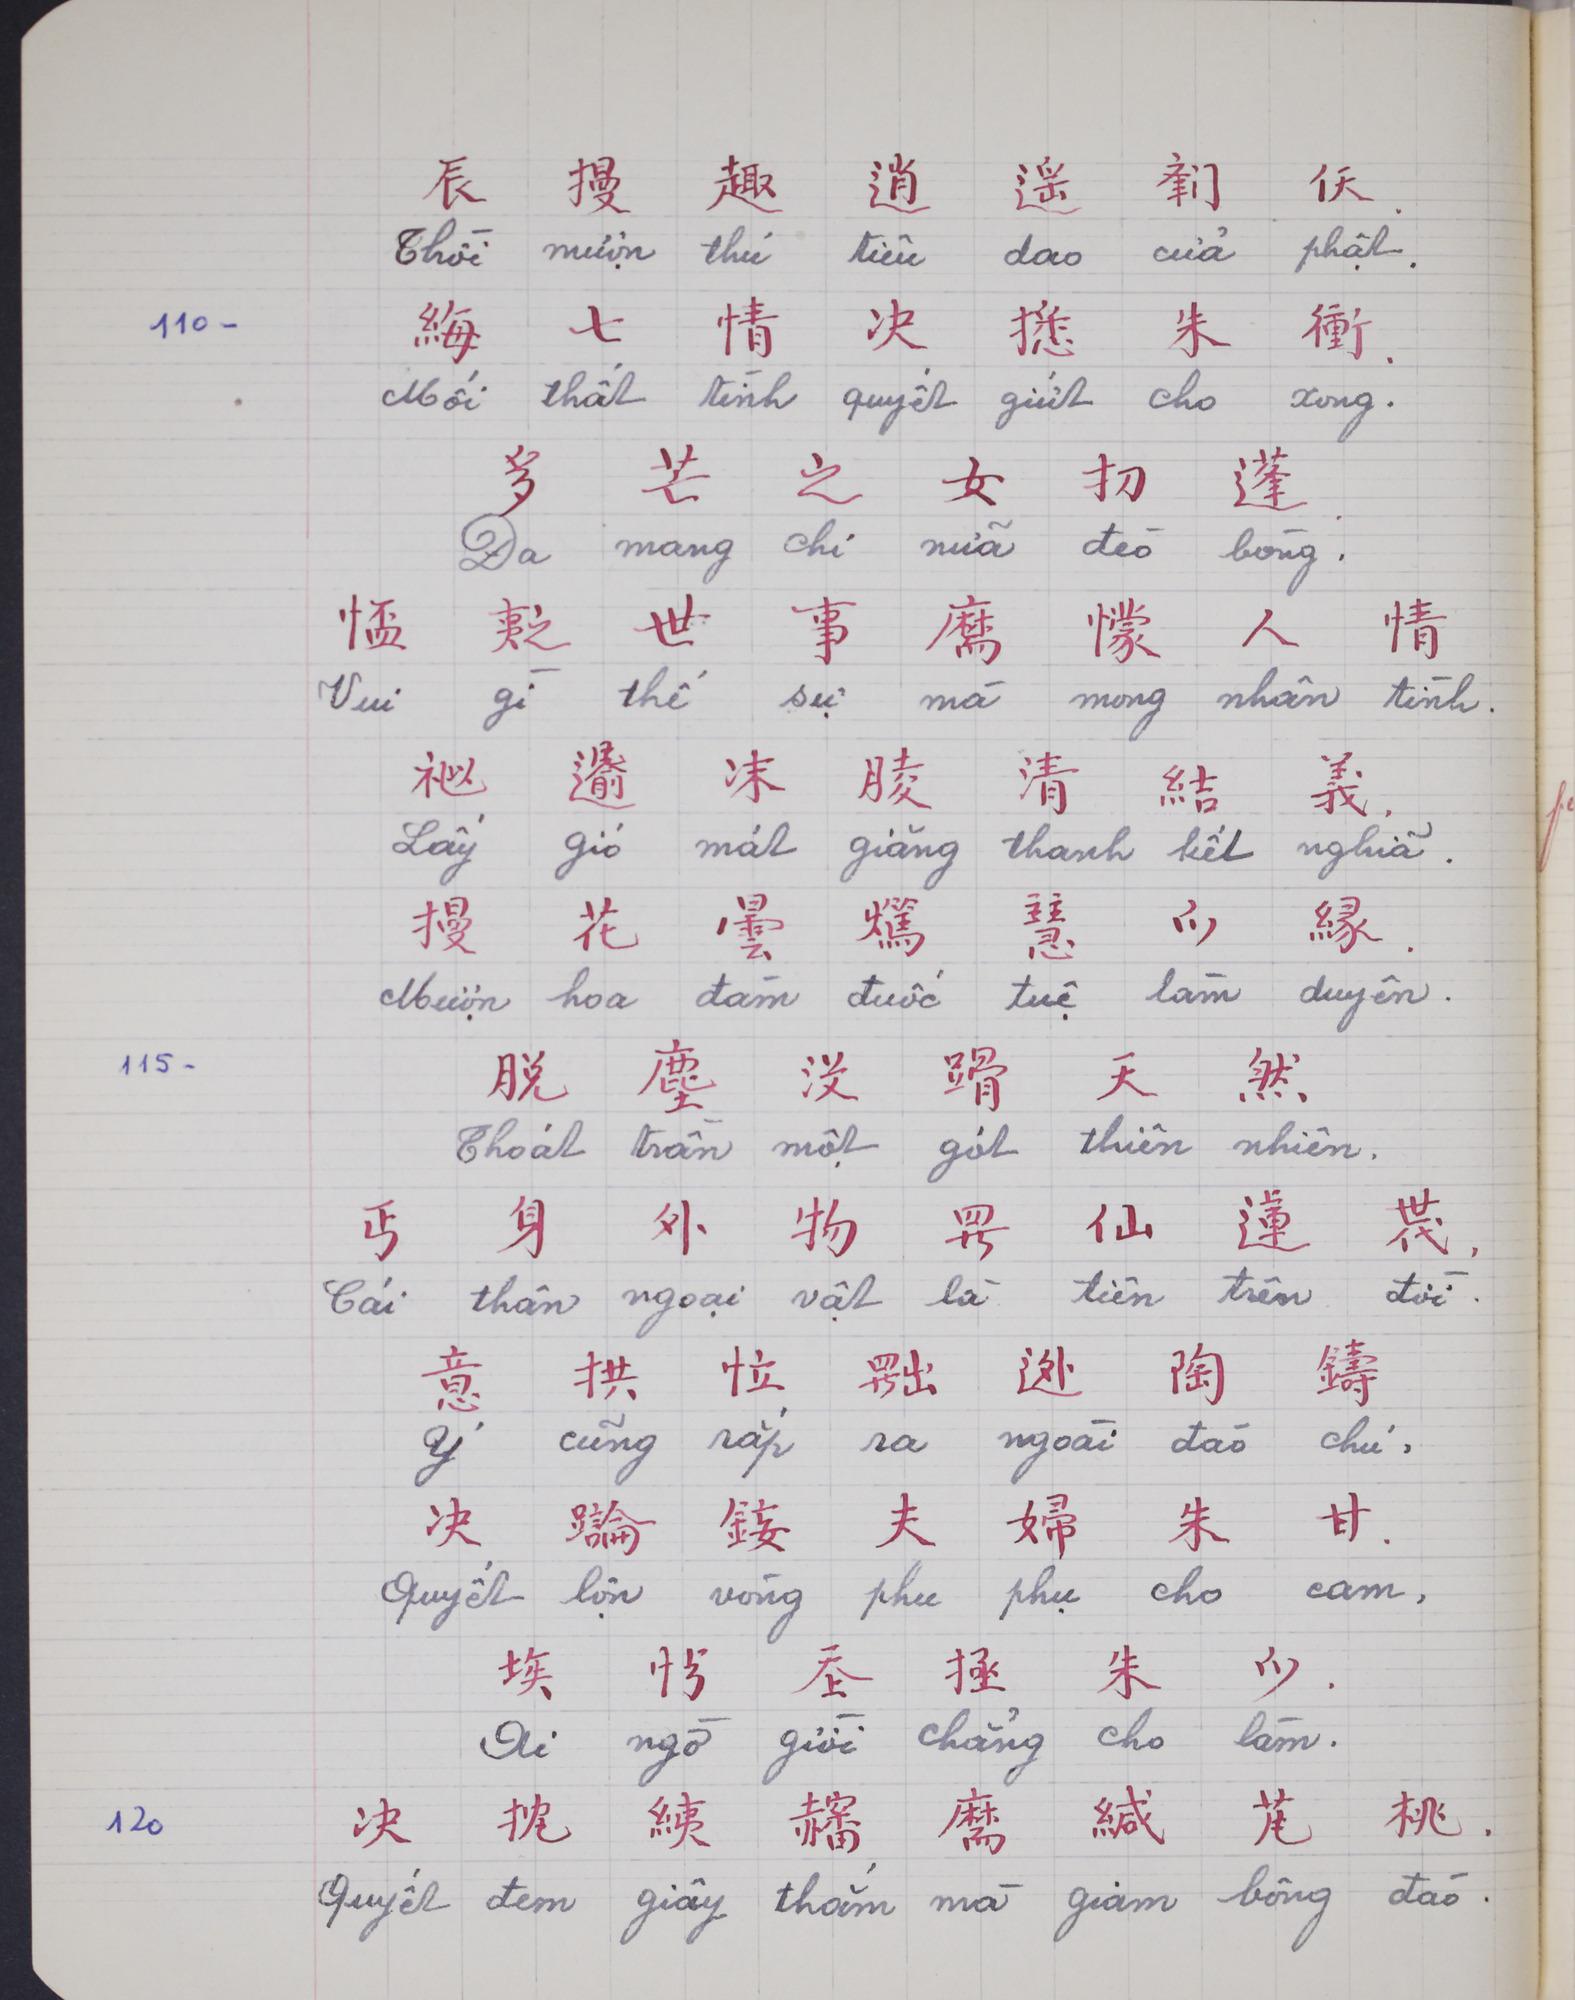 辰 摱 趣 逍 遥 𧵑 仸.
Thời mượn thú tiêu dao cửa phật.
110- 𦇒 七 情 决 𢴑 朱 衝.
Mối thất tình quyết giứt cho xong.
多 芒 之 女 扨 蓬.
Đa mang chi nữa đèo bòng.
𢝙 之 世 事 麻 懞 人 情
Vui gì thế sự mà mong nhân tình.
𥙩 𩙋 沫 𦝄 清 結 義.
Lấy gió mát giăng thanh kết nghĩa.
摱 花 曇 𤒘 慧 𫜵 縁.
Mượn hoa đàm đuốc tuệ làm duyên.
115- 脱 塵 沒 𨃴 天 然
Thoát trần một gót thiên nhiên.
丐 身 外 物 羅 仙 𨕭 𠁀,
Cái thân ngoại vật là tiên trên đời.
意 拱 㤕 𦋦 外 陶 鑄
Ý cũng rắp ra ngoài đào chú,
决 𨀎 鋄 夫 婦 朱 甘.
Quyết lộn vòng phu phụ cho cam,
埃 𢘾 𡗶 拯 朱 𫜵.
Ai ngờ giời chẳng cho làm.
120 决 抌 𦀊 𧹰 麻 緘 芃 桃.
Quyết đem giây thắm mà giàm bông đào.